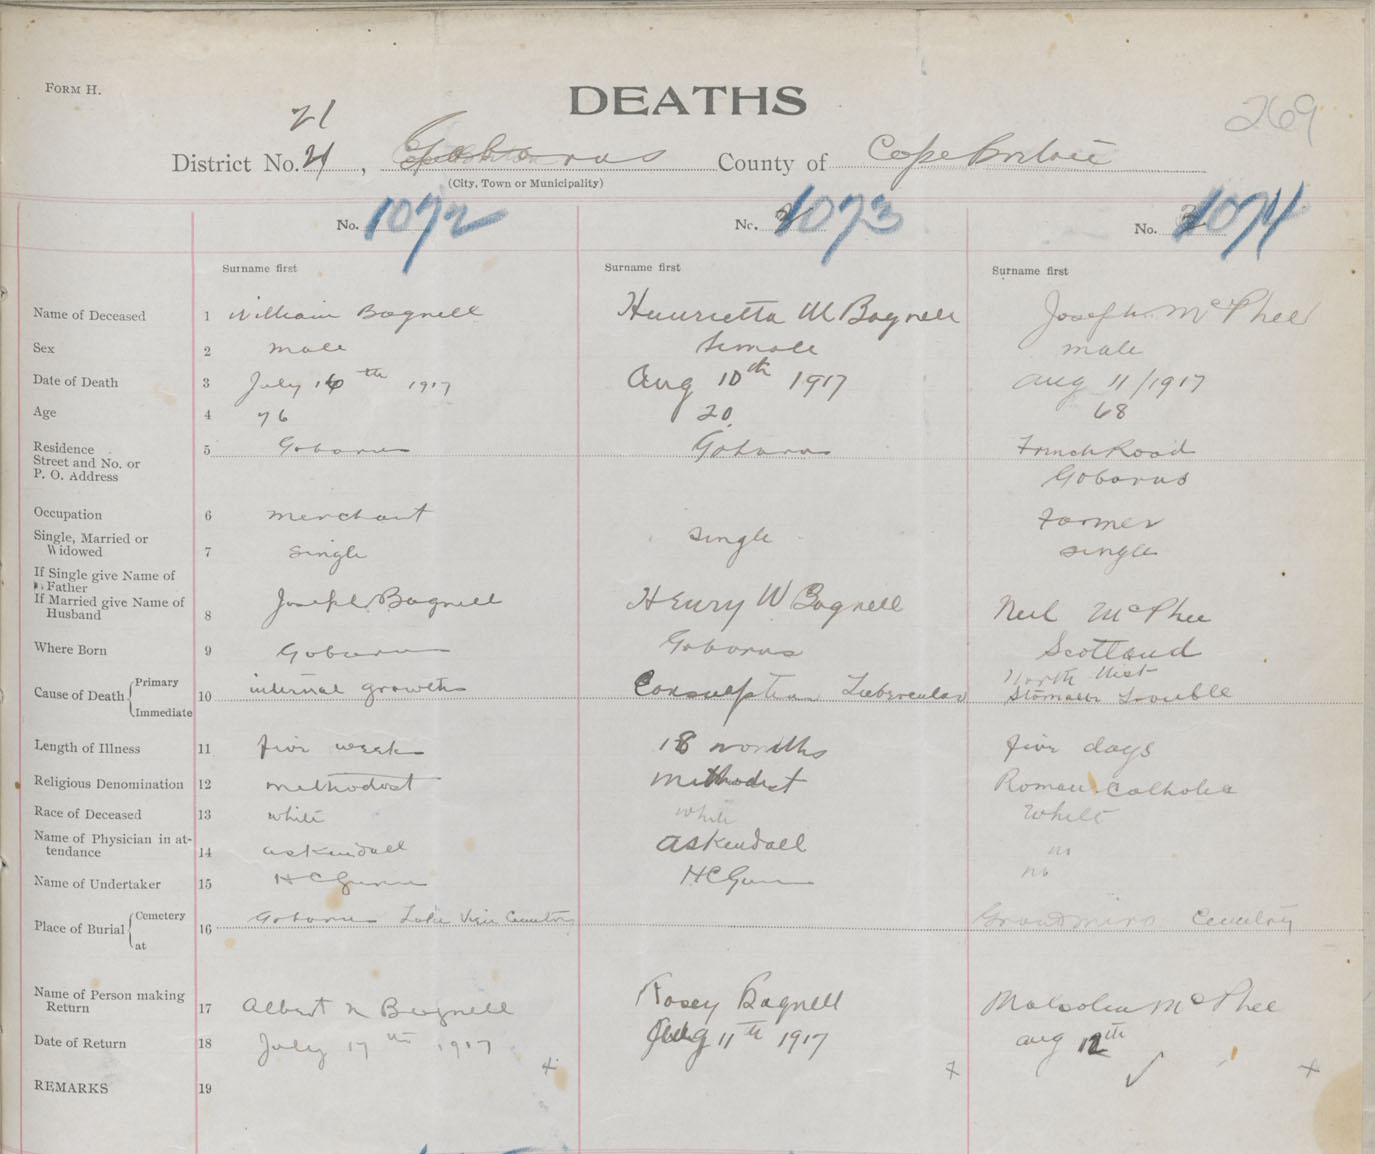 FORM H.
DEATHS
269
21
District No. 21, Gabarus County of Cape Breton
(City, Town or Municipality)
No. 1072 No. 2 1073 No. 3 1074
Surname first Surname first Surname first
Name of Deceased 1 William Bagnell Henrietta M Bagnell Joseph McPhee
Sex 2 male female male
Date of Death 3 July 16th 1917 Aug 10th 1917 Aug 11/1917
Age 4 76 20 68
Residence 5 Gabarus Gabarus French Road
Street and No. or
P. O. Address Gabarus
Occupation 6 merchant Farmer
Single, Married or
Widowed 7 single single single
If Single give Name of
Father
If Married give Name of
Husband 8 Joseph Bagnell Henry W Bagnell Neil McPhee
Where Born 9 Gabarus Gabarus Scotland
North Uist
Cause of Death Primary 10 internal growth Consumption Tubercular Stomach Trouble
Immediate
Length of Illness 11 five weeks 18 months five days
Religious Denomination 12 methodist Methodist Roman Catholic
Race of Deceased 13 white white White
Name of Physician in at-
tendance 14 as Kendall as Kendall no
Name of Undertaker 15 HC Gunn HC Gunn no
Place of Burial Cemetery 16 Gabarus Lake View Cemetery Cemetery
at
Name of Person making
Return 17 Albert N Bagnell Rosey Bagnell Malcolm McPhee
Date of Return 18 July 17th 1917 Aug 11th 1917 Aug 12th
REMARKS 19